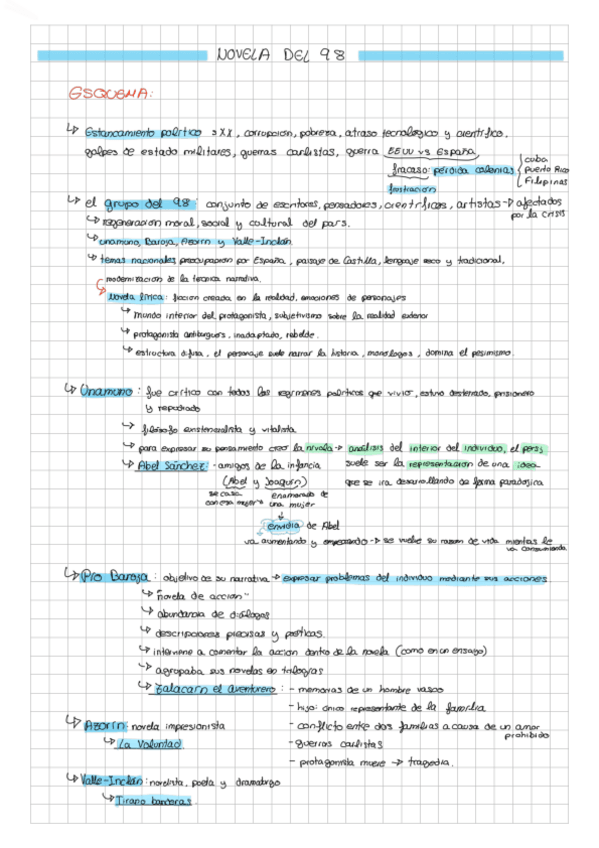 NOVELA DEL 98
ESQUEMA:
↳ Estancamiento político sXX, corrupcion, pobreza, atraso tecnologico y cientifico.
golpes de estado militares, guerras carlistas, guerra EEUU vs España
fracaso: pérdida colonias { cuba
Puerto Rico
Filipinas
frustración
↳ el grupo del 98: conjunto de escritores, pensadores, cientificas, artistas → afectados
por la crisis
↳ regeneracion moral, social y cultural del pais.
↳ unamuno, Baroja, Azorin y Valle-Inclán.
↳ temas nacionales preocupacion por España, paisaje de Castilla, lenguaje seco y tradicional,
modernizacion de la tecnica narrativa.
Novela lírica: ficcion creada en la realidad, emociones de personajes
↳ mundo interior del protagonista, subjetivismo sobre la realidad exterior
↳ protagonista antiburgues, inadaptado, rebelde.
↳ estructura difusa, el personaje suele narrar la historia, monologos, domina el pesimismo.
↳ Unamuno: fue critico con todos los regimenes politicos que vivió, estuvo desterrado, prisionero
y repudiado
↳ filósofo existencialista y vitalista.
↳ para expresar su pensamiento creo la nivola → análisis del interior del individuo, el persj
↳ Abel Sánchez: - amigos de la infancia suele ser la representacion de una idea
(Abel y Joaquín) que se ira desarrollando de forma paradojica
se casa con esa mujer enamorado de una mujer
↓
envidia de Abel
va aumentando y empeorando → se vuelve su razon de vida mientras le
va consumiendo
↳ Pío Baroja: objetivo de su narrativa → expresar problemas del individuo mediante sus acciones
↳ "novela de accion"
↳ abundancia de diálogos
↳ descripciones precisas y poeticas.
↳ interviene a comentar la accion dentro de la novela (como en un ensayo)
↳ agrupaba sus novelas en trilogías
↳ Zalacaín el aventurero: - memorias de un hombre vasco
- hijo: único representante de la familia
↳ Azorín: novela impresionista - conflicto entre dos familias a causa de un amor
prohibido
↳ La Voluntad. - guerras carlistas
- protagonista muere → tragedia.
↳ Valle-Inclán: novelista, poeta y dramaturgo
↳ Tirano banderas.